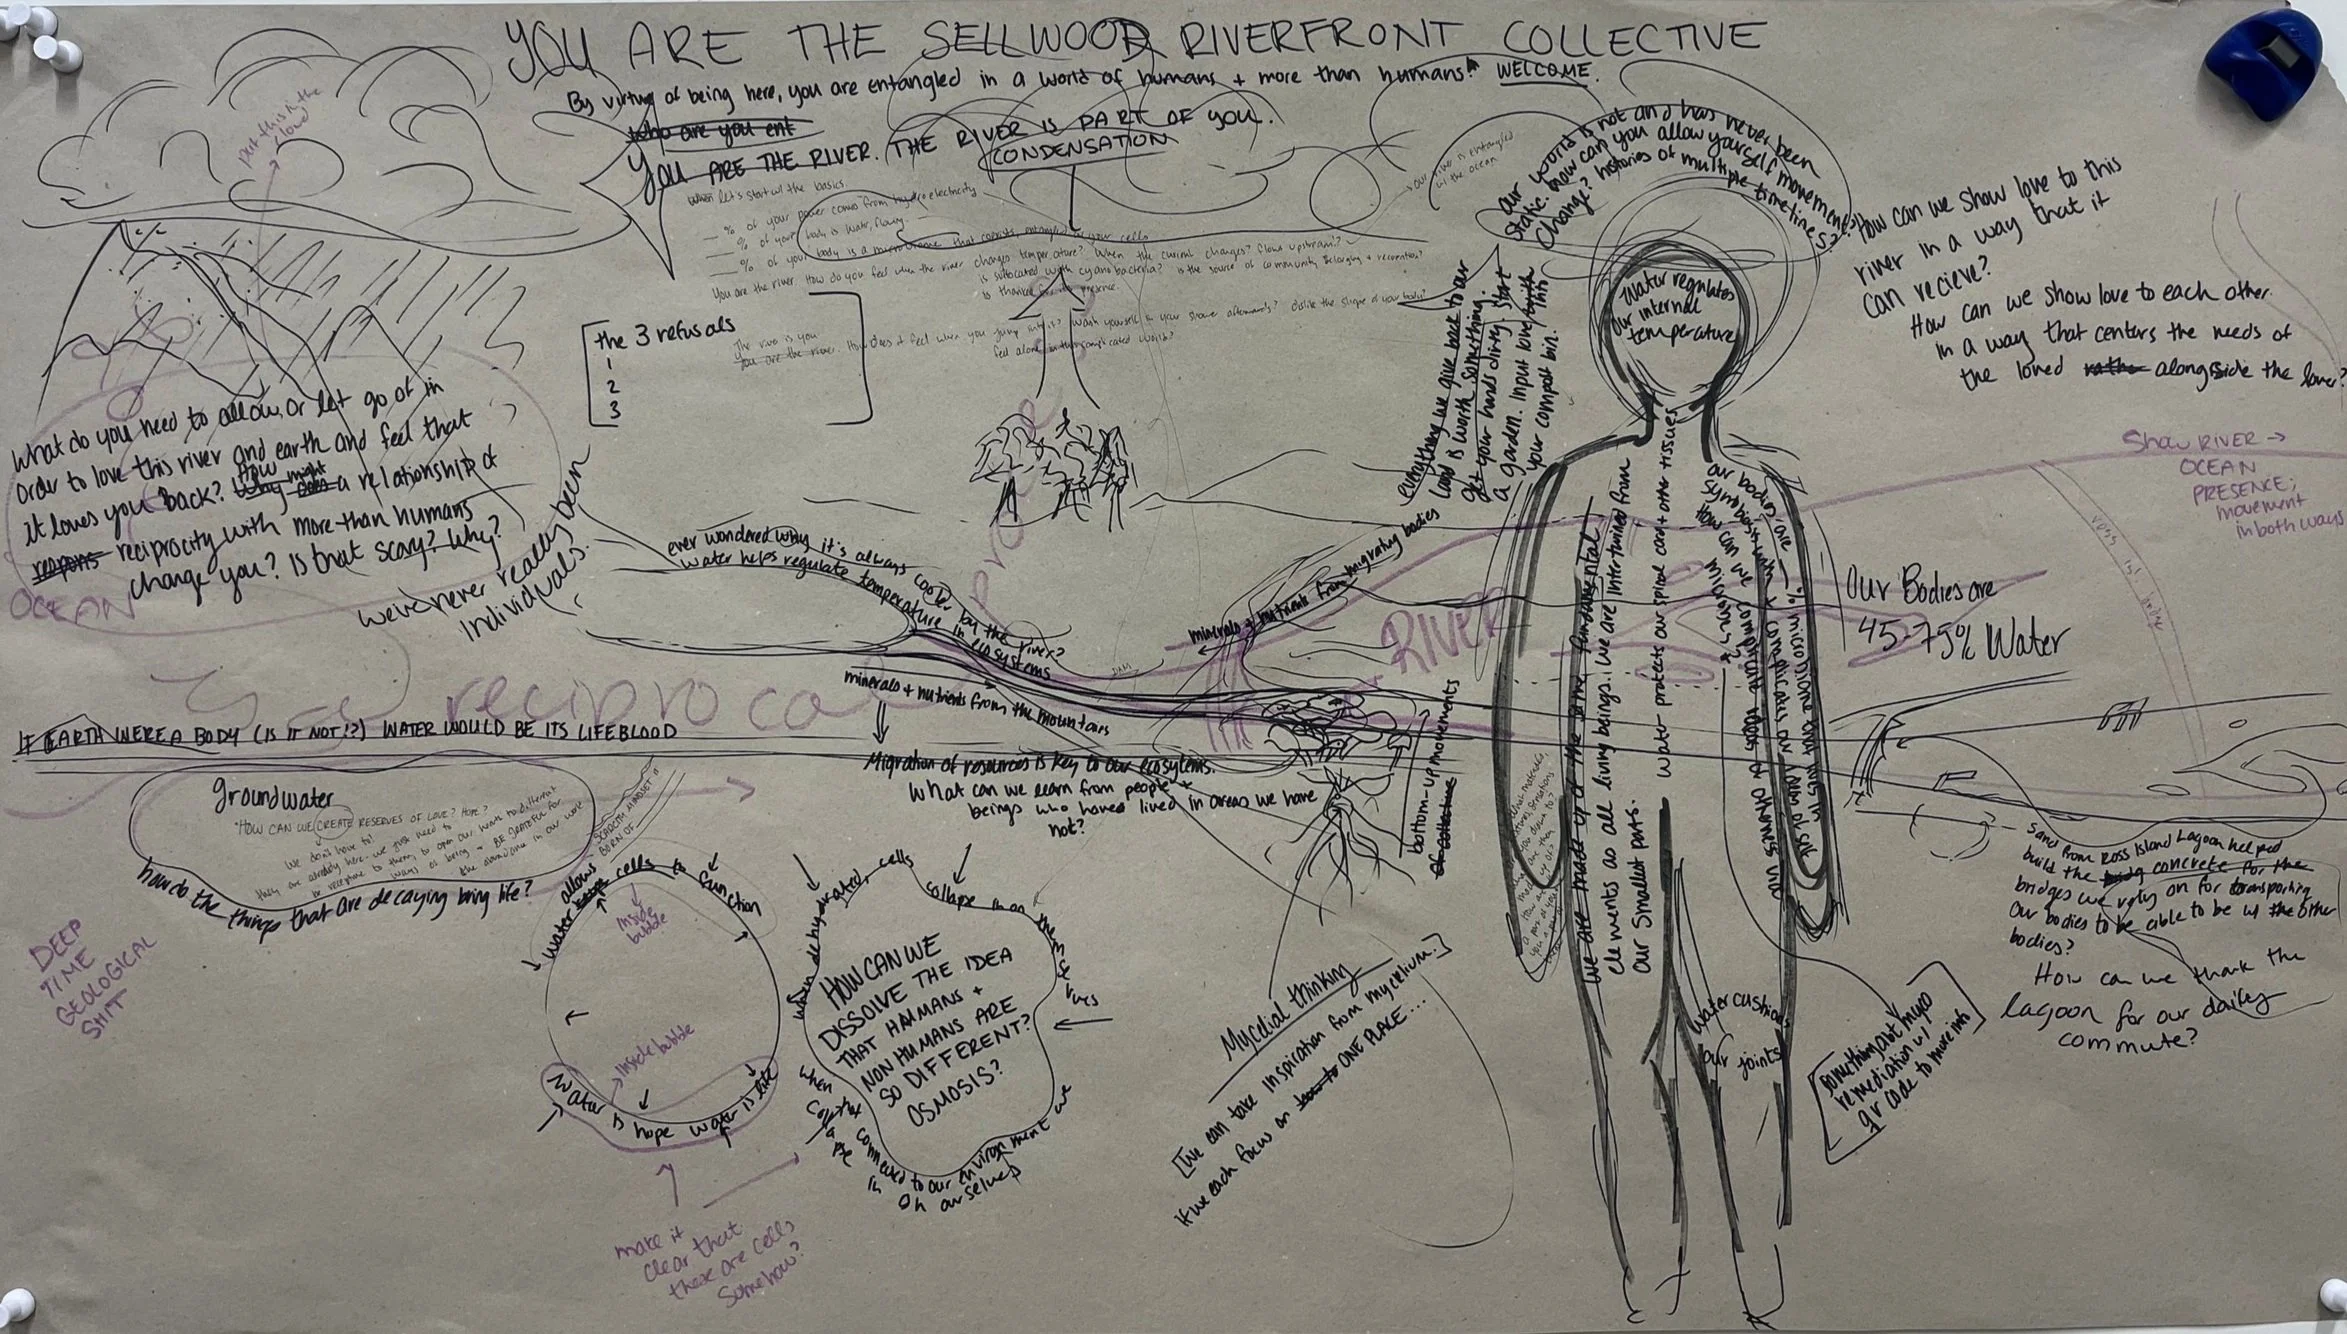 YOU ARE THE SELLWOOD RIVERFRONT COLLECTIVE
By virtue of being here, you are entangled in a world of humans + more than humans! WELCOME.
who are you ent
YOU ARE THE RIVER. THE RIVER IS PART OF YOU.
CONDENSATION
put this in the cloud
When let's start w/ the basics
% of your power comes from hydroelectricity
% of your body is water, flowing.
% of your body is a microbiome that coexists, entangled w/ your cells
You are the river. How do you feel when the river changes temperature? When the current changes? flows upstream?
is suffocated with cyanobacteria? is the source of community belonging + recreation?
to thankee for its presence.
The river is you
You are the river. How does it feel when you jump into it? Wash yourself in your shower afterwards? dislike the shape of your body?
feel alone in this complicated world?
the 3 refusals
1
2
3
our river is entangled
w/ the ocean
Our world is not and has never been
static. How can you allow yourself movement?
Change? histories of multiple timelines?
How can we show love to this
river in a way that it
can recieve?
How can we show love to each other
in a way that centers the needs of
the loved rather alongside the lover?
Water regulates
our internal
temperature
everything we give back to our
land is worth something.
get your hands dirty. Start
a garden. Input love truth into
your compost bin.
What do you need to allow, or let go of in
order to love this river and earth and feel that
it loves you back? Why does How might a relationship of
respons reciprocity with more-than humans
change you? Is that scary? Why?
OCEAN
we've never really been
individuals.
ever wondered why it's always cooler by the river?
water helps regulate temperature in ecosystems
minerals + nutrients from migrating bodies
minerals + nutrients from the mountains
DAM
RIVER
reciprocal
Show RIVER →
OCEAN
PRESENCE;
movement
in both ways
Our Bodies are
45-75% Water
IF EARTH WERE A BODY (IS IT NOT!?) WATER WOULD BE ITS LIFEBLOOD
Migration of resources is key to our ecosystems.
What can we learn from people +
beings who haved lived in areas we have
not?
bottom-up movements
of collections
we are made up of the same fundamental
elements as all living beings. we are intertwined from
our smallest parts.
Water protects our spinal cord + other tissues
Our bodies are
symbiosis with
How can we
groundwater
"HOW CAN WE CREATE RESERVES OF LOVE? HOPE?
We don't have to!
they are already here. we just need to
be receptive to them, to open our hearts to different
ways of being + BE GRATEFUL for
the abundance in our work
SCARCITY MINDSET"
BORN OF
how do the things that are decaying bring life?
DEEP
TIME
GEOLOGICAL
SHIT
water allows keeps cells to function
Inside
bubble
Inside bubble
Water is hope water is life
make it
clear that
these are cells
somehow?
when dehydrated, cells collapse in on themselves
HOW CAN WE
DISSOLVE THE IDEA
THAT HUMANS +
NON HUMANS ARE
SO DIFFERENT?
OSMOSIS?
Mycelial thinking
[We can take inspiration from mycelium.]
if we each focus on how to ONE PLACE...
Water cushions
our joints
something abt myco
remediation w/
qr code to more info
Sand from Ross Island Lagoon helped
build the bridg concrete for the
bridges we rely on for transporting
Our bodies to be able to be w/ the other
bodies?
How can we thank the
lagoon for our daily
commute?